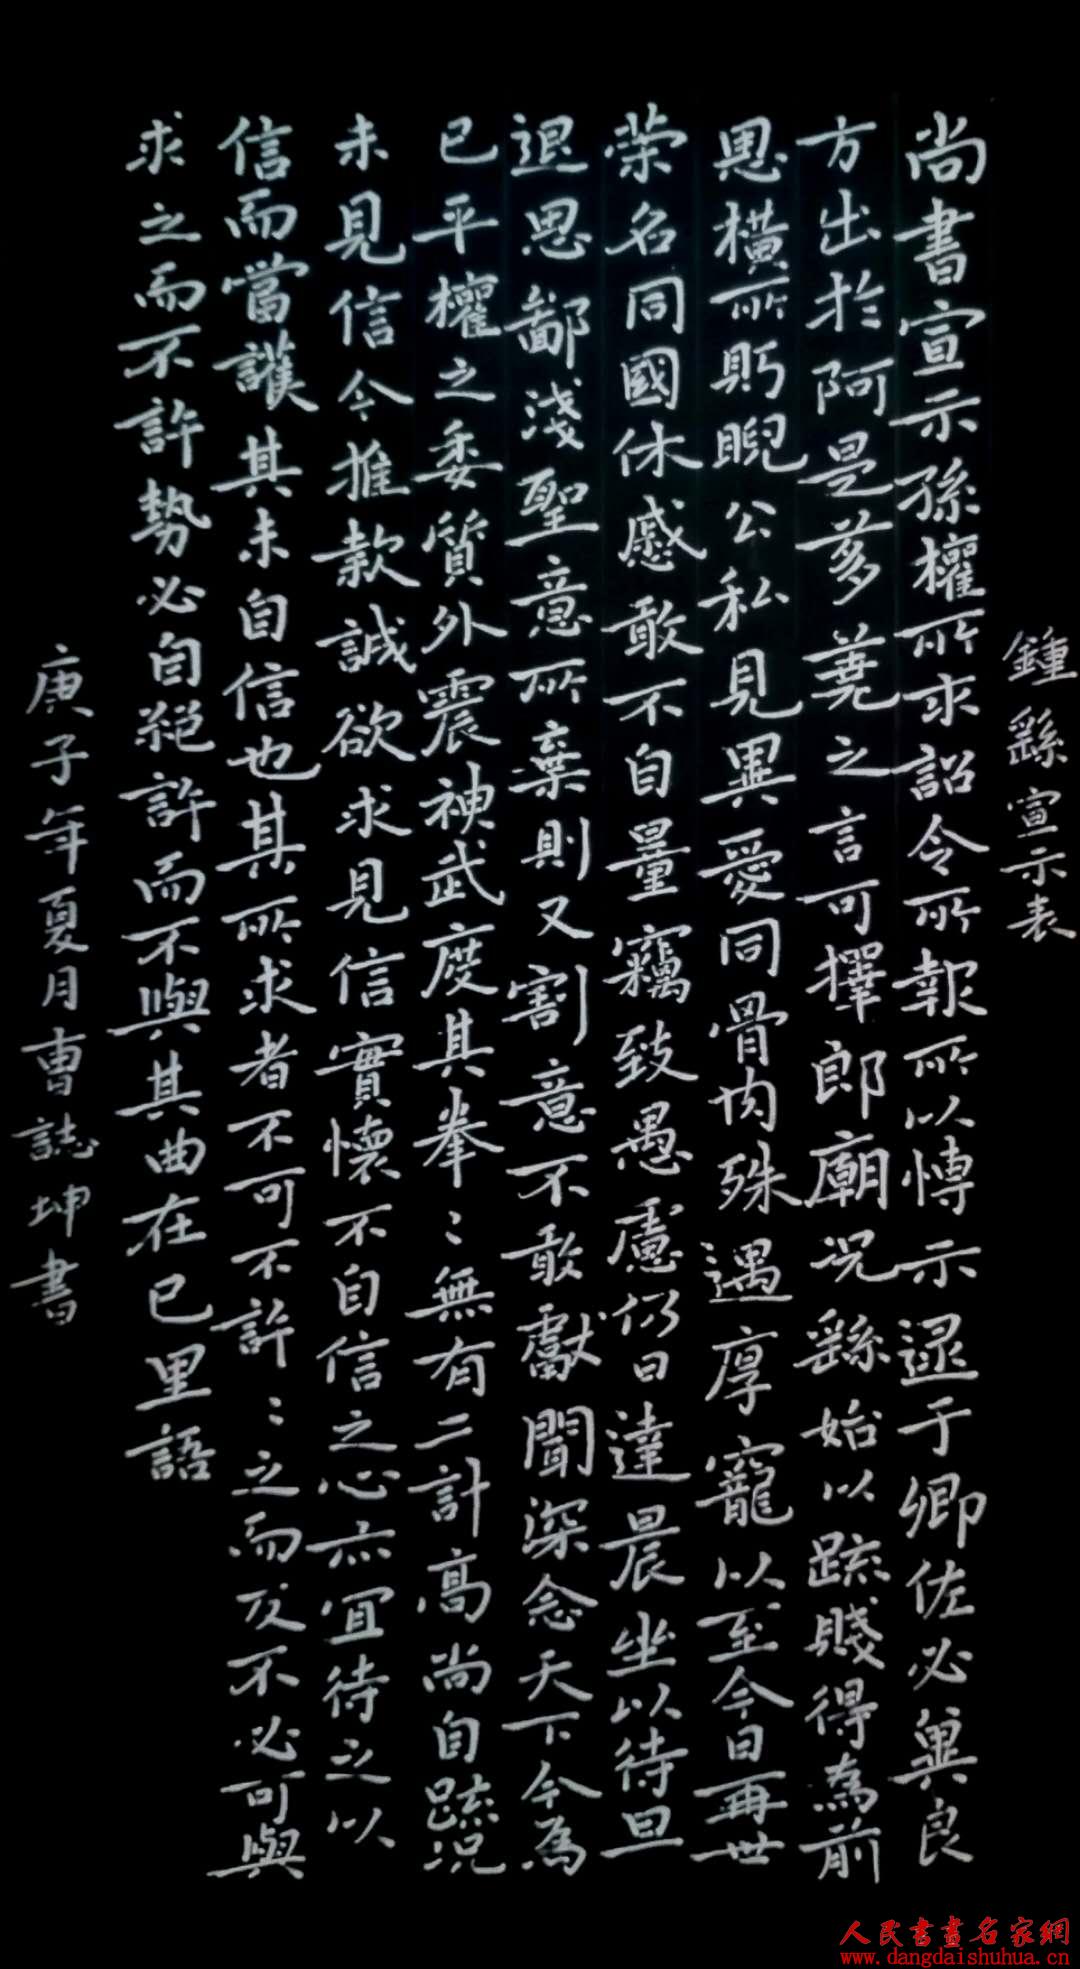 鍾繇宣示表
尚書宣示孫權所求詔令所報所以博示逯于卿佐必冀良
方出於阿是芻蕘之言可擇郎廟況繇始以疏賤得為前
恩橫所眄睨公私見異愛同骨肉殊遇厚寵以至今日再世
榮名同國休慼敢不自量竊致愚慮仍日達晨坐以待旦
退思鄙淺聖意所棄則又割意不敢獻聞深念天下今為
已平權之委質外震神武度其拳〻無有二計高尚自疏況
未見信今推款誠欲求見信實懷不自信之心亦宜待之以
信而當護其未自信也其所求者不可不許〻之而反不必可與
求之而不許勢必自絕許而不與其曲在已里語
庚子年夏月曹誌坤書
人民書畫名家網
www.dangdaishuhua.cn